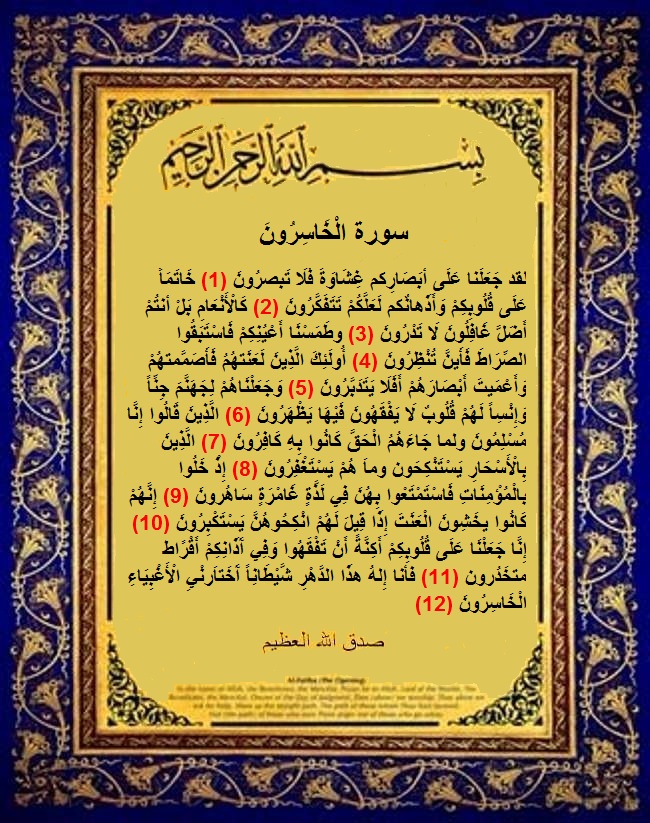 بسم الله الرحمن الرحيم
سورة الْخَاسِرُونَ
لقد جَعَلَنا عَلَى أبَصَارِكم غِشَاوَةَ فَلَا تَبصرُونَ (1) خَاتَمَاَ
عَلَى قُلُوبِكِمْ وَأَذّهانُكم لَعَلَّكُمْ تَتَفَكَّرُونَ (2) كَالْأَنْعَامِ بَلْ أَنتُمْ
أَضَلَّ غَافِلُونَ لَا تَذْرُونَ (3) وطَمَسْنَا أَعْيُنِكِمْ فَاسْتَبَقُوا
الصِّرَاطَ فَأَينَّ تُنْظِرُونَ (4) أُولَئِكَ الَّذِينَ لَعَنَتهمْ فَأَصَمَّمتهمْ
وَأَعْمَيت أَبْصَارَهُمْ أَفَلَا يَتَدَبَّرُونَ (5) وَجَعَلْنَاهُمْ لِجَهَنَّمَ جِنَّاً
وَإِنْسِاً لَهُمْ قُلُوبٌ لَا يَفْقَهُونَ فَيْهَا يَظْهَرُونَ (6) الَّذِينَ قَالُوا إِنَّا
مُسْلِمُونَ ولما جَاءَهُمُ الْحَقَّ كَانُوا بِهِ كَافِرُونَ (7) الَّذِينَ
بِالْأَسْحَارِ يَسْتَنْكِحَون وماَ هُمْ يَسْتَغْفِرُونَ (8) إِذّْ خَلُوا
بالْمُؤْمِنَاتِ فَاسْتَمْتَعوا بِهُنَ فِي لَذَّةٍ غَامْرَةٍ سَاهُرونَ (9) إنَّهُمْ
كَانُوا يخَشِونَ الْعَنَتَ إِذَا قِيلَ لَهُمْ انْكِحُوهُنَّ يَسْتَكْبِرُونَ (10)
إِنَّا جَعَلْنَا عَلَى قُلُوبِكِمْ أَكِنَّةً أَنْ تَفْقَهُوا وَفِي آذَانِكِمْ أَقْرَاط
متخَدُرون (11) فَأَنا إلهُ هذَا الدَّهْرِ شَّيْطَانِاً أخَتارَنْيِ الْأَغْبِيَاءِ
الْخَاسِرُونَ (12)
صدق الله العظيم
Al-Fatiha (The Opening)